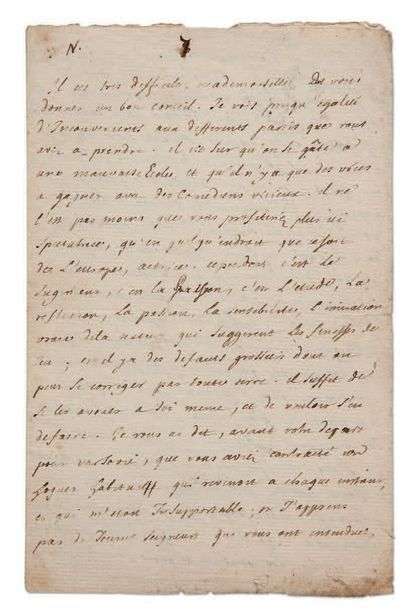 N. 7
Il est tres difficile, mademoiselle, De vous
donner un bon conseil. Je vois presqu'egalité
d'Inconvenients aux differents partis que vous
avez a prendre. Il est sur qu'on se gâte a
une mauvaise Ecole, et qu'il n'ya que des vices
a gagner avec des Comediens vicieux. Il ne
l'est pas moins que vous profiteriez plus ici
Spectatrice, qu'en quelqu'endroit que ce soit
de L'europe, actrice. cependant c'est le
Jugement, c'est la Raison, c'est L'etude, La
reflexion, La passion, La sensibilité, l'imitation
vraie dela nature qui suggerent les finesses de
jeu; et il ya des defauts grossiers dont on
peut se corriger par toute terre. il suffit de
se les avouer a soi meme, et de vouloir s'en
defaire. Je vous ai dit, avant votre depart
pour varsovie, que vous aviez contracté un
hoquet habituel qui revenoit a chaque instant,
et qui m'etoit Insupportable, et J'apprens
par de Jeunes Seigneurs qui vous ont entendue,